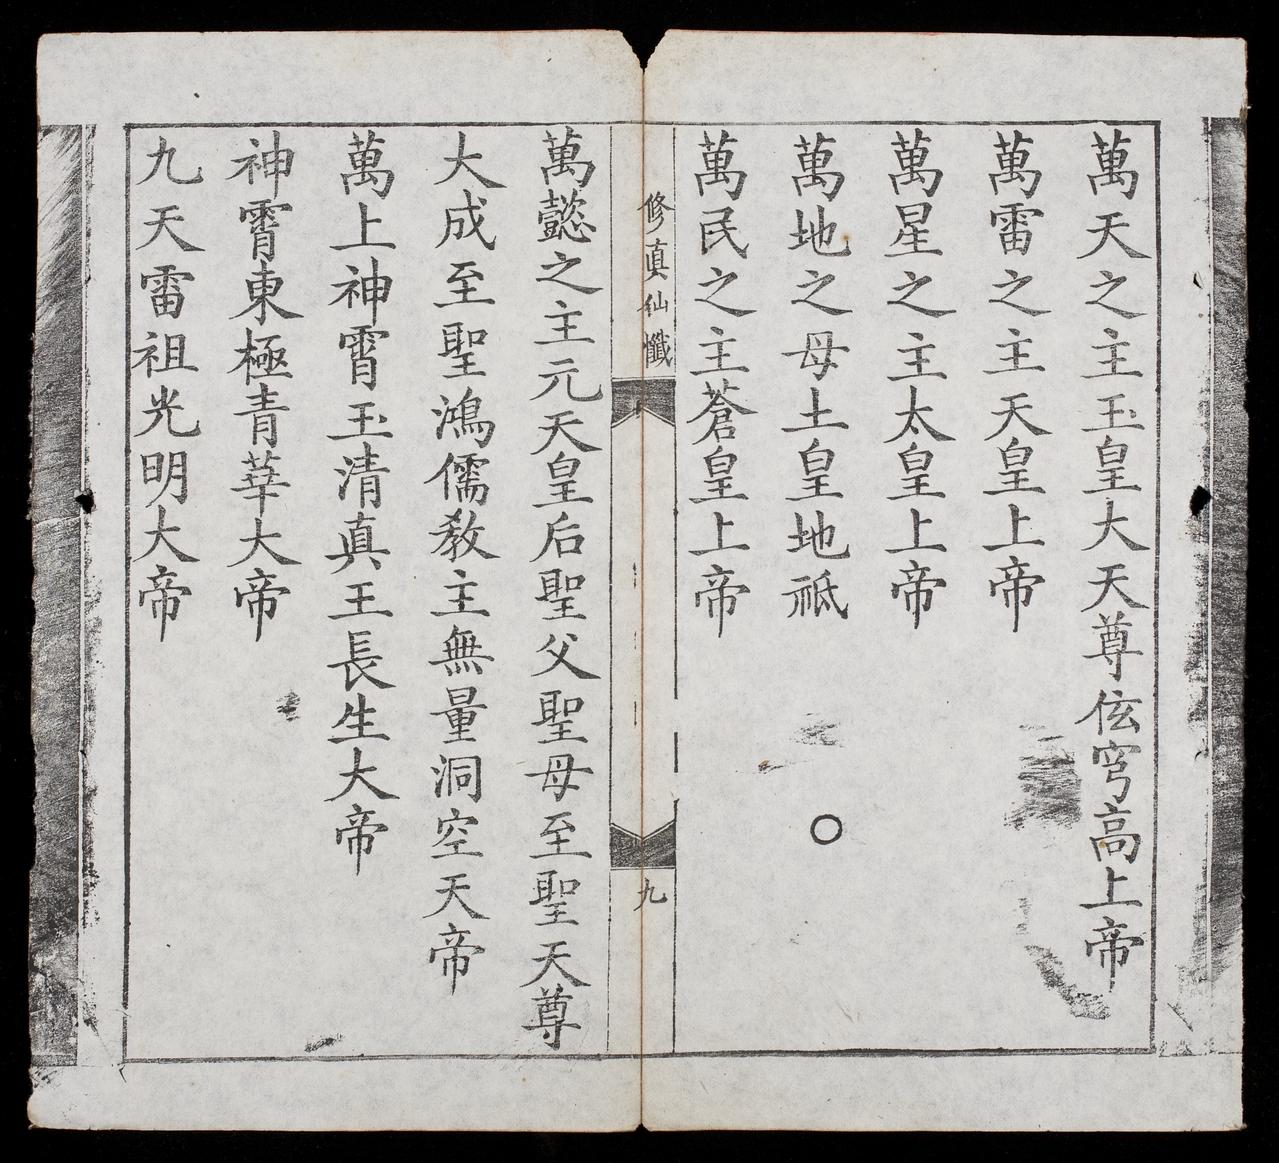 萬天之主玉皇大天尊伭穹高上帝
萬雷之主天皇上帝
萬星之主太皇上帝
萬地之母土皇地祇
萬民之主蒼皇上帝
修真仙懺
九
萬懿之主元天皇后聖父聖母至聖天尊
大成至聖鴻儒教主無量洞空天帝
萬上神霄玉清真王長生大帝
神霄東極青華大帝
九天雷祖光明大帝